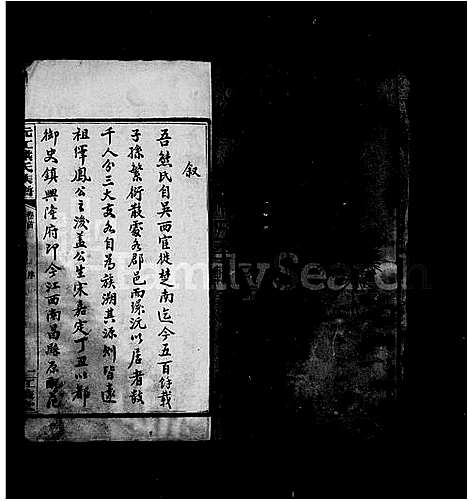 叙
吾熊氏自吳西官徙楚南迄今五百餘載
子孫繁衍散處各郡邑而環沅以居者數
千人分三大支各自爲族溯其源則皆遠
祖恽鳳公之後蓋公生宋嘉定丁丑以都
御史鎮興隆府卽今江西南昌縣原
沅江熊氏族譜
卷首
序
FamilySearch